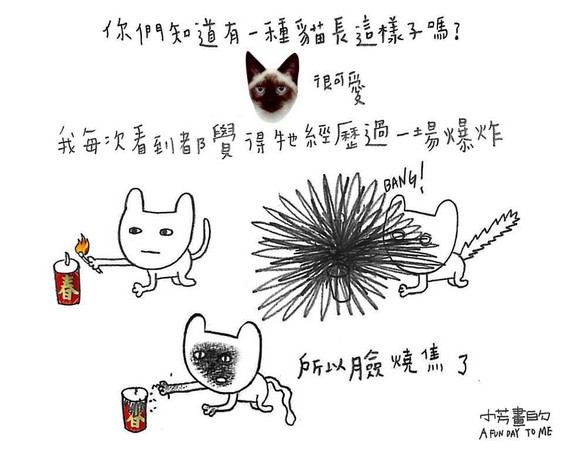 你們知道有一種貓長這樣子嗎?
很可愛
我每次看到都覺得牠經歷過一場爆炸
BANG!
春
春
所以臉燒焦了
小芳畫的
A FUN DAY TO ME